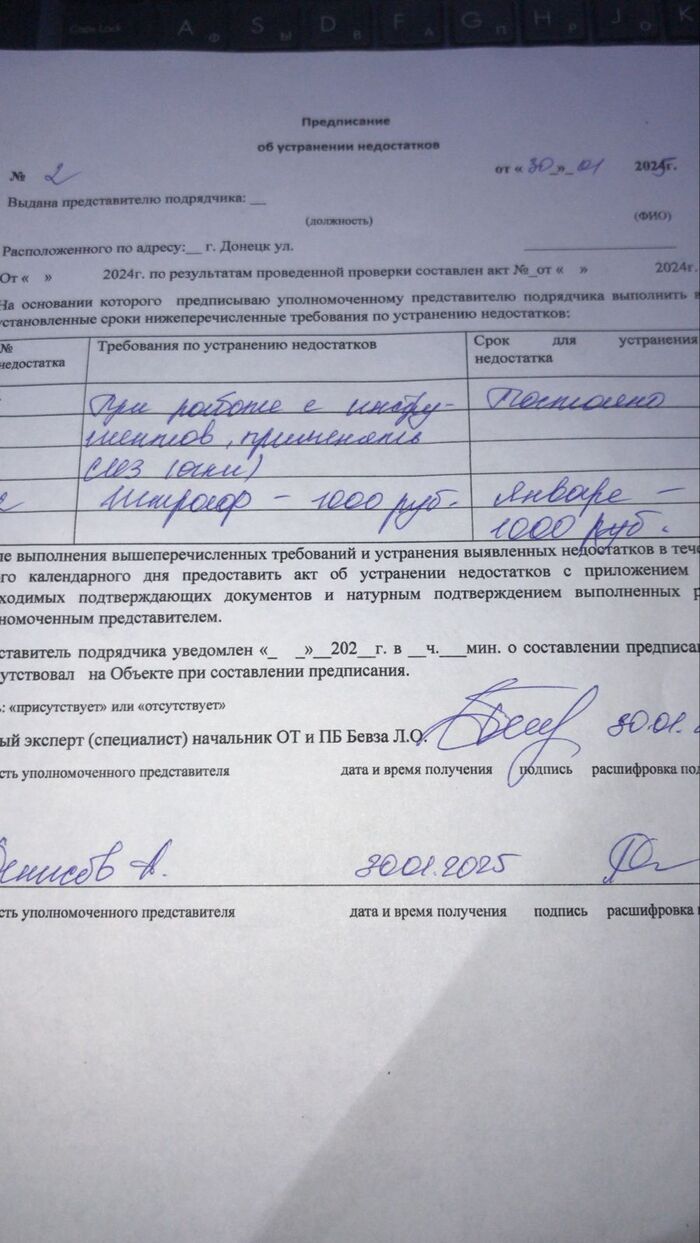 Caps Lock A Ф S Ы D В F А G П H Р J О K
Предписание
об устранении недостатков
№ 2 от « 30 »_ 01 2025г.
Выдана представителю подрядчика: __
(должность) (ФИО)
Расположенного по адресу:__ г. Донецк ул.
От « » 2024г. по результатам проведенной проверки составлен акт №_от « » 2024г.
На основании которого предписываю уполномоченному представителю подрядчика выполнить в
установленные сроки нижеперечисленные требования по устранению недостатков:
№ Требования по устранению недостатков Срок для устранения
недостатка недостатка
При работе с инстру- Постоянно
ментов, применять
СИЗ (очки)
2 Штраф - 1000 руб. Январе -
1000 руб.
ле выполнения вышеперечисленных требований и устранения выявленных недостатков в тече
ого календарного дня предоставить акт об устранении недостатков с приложением
ходимых подтверждающих документов и натурным подтверждением выполненных р
номоченным представителем.
ставитель подрядчика уведомлен «_ _»__202__г. в __ч.___мин. о составлении предписа
утствовал на Объекте при составлении предписания.
: «присутствует» или «отсутствует»
ый эксперт (специалист) начальник ОТ и ПБ Бевза Л.О. 30.01.2
сть уполномоченного представителя дата и время получения подпись расшифровка под
Денисов А. 30.01.2025
сть уполномоченного представителя дата и время получения подпись расшифровка